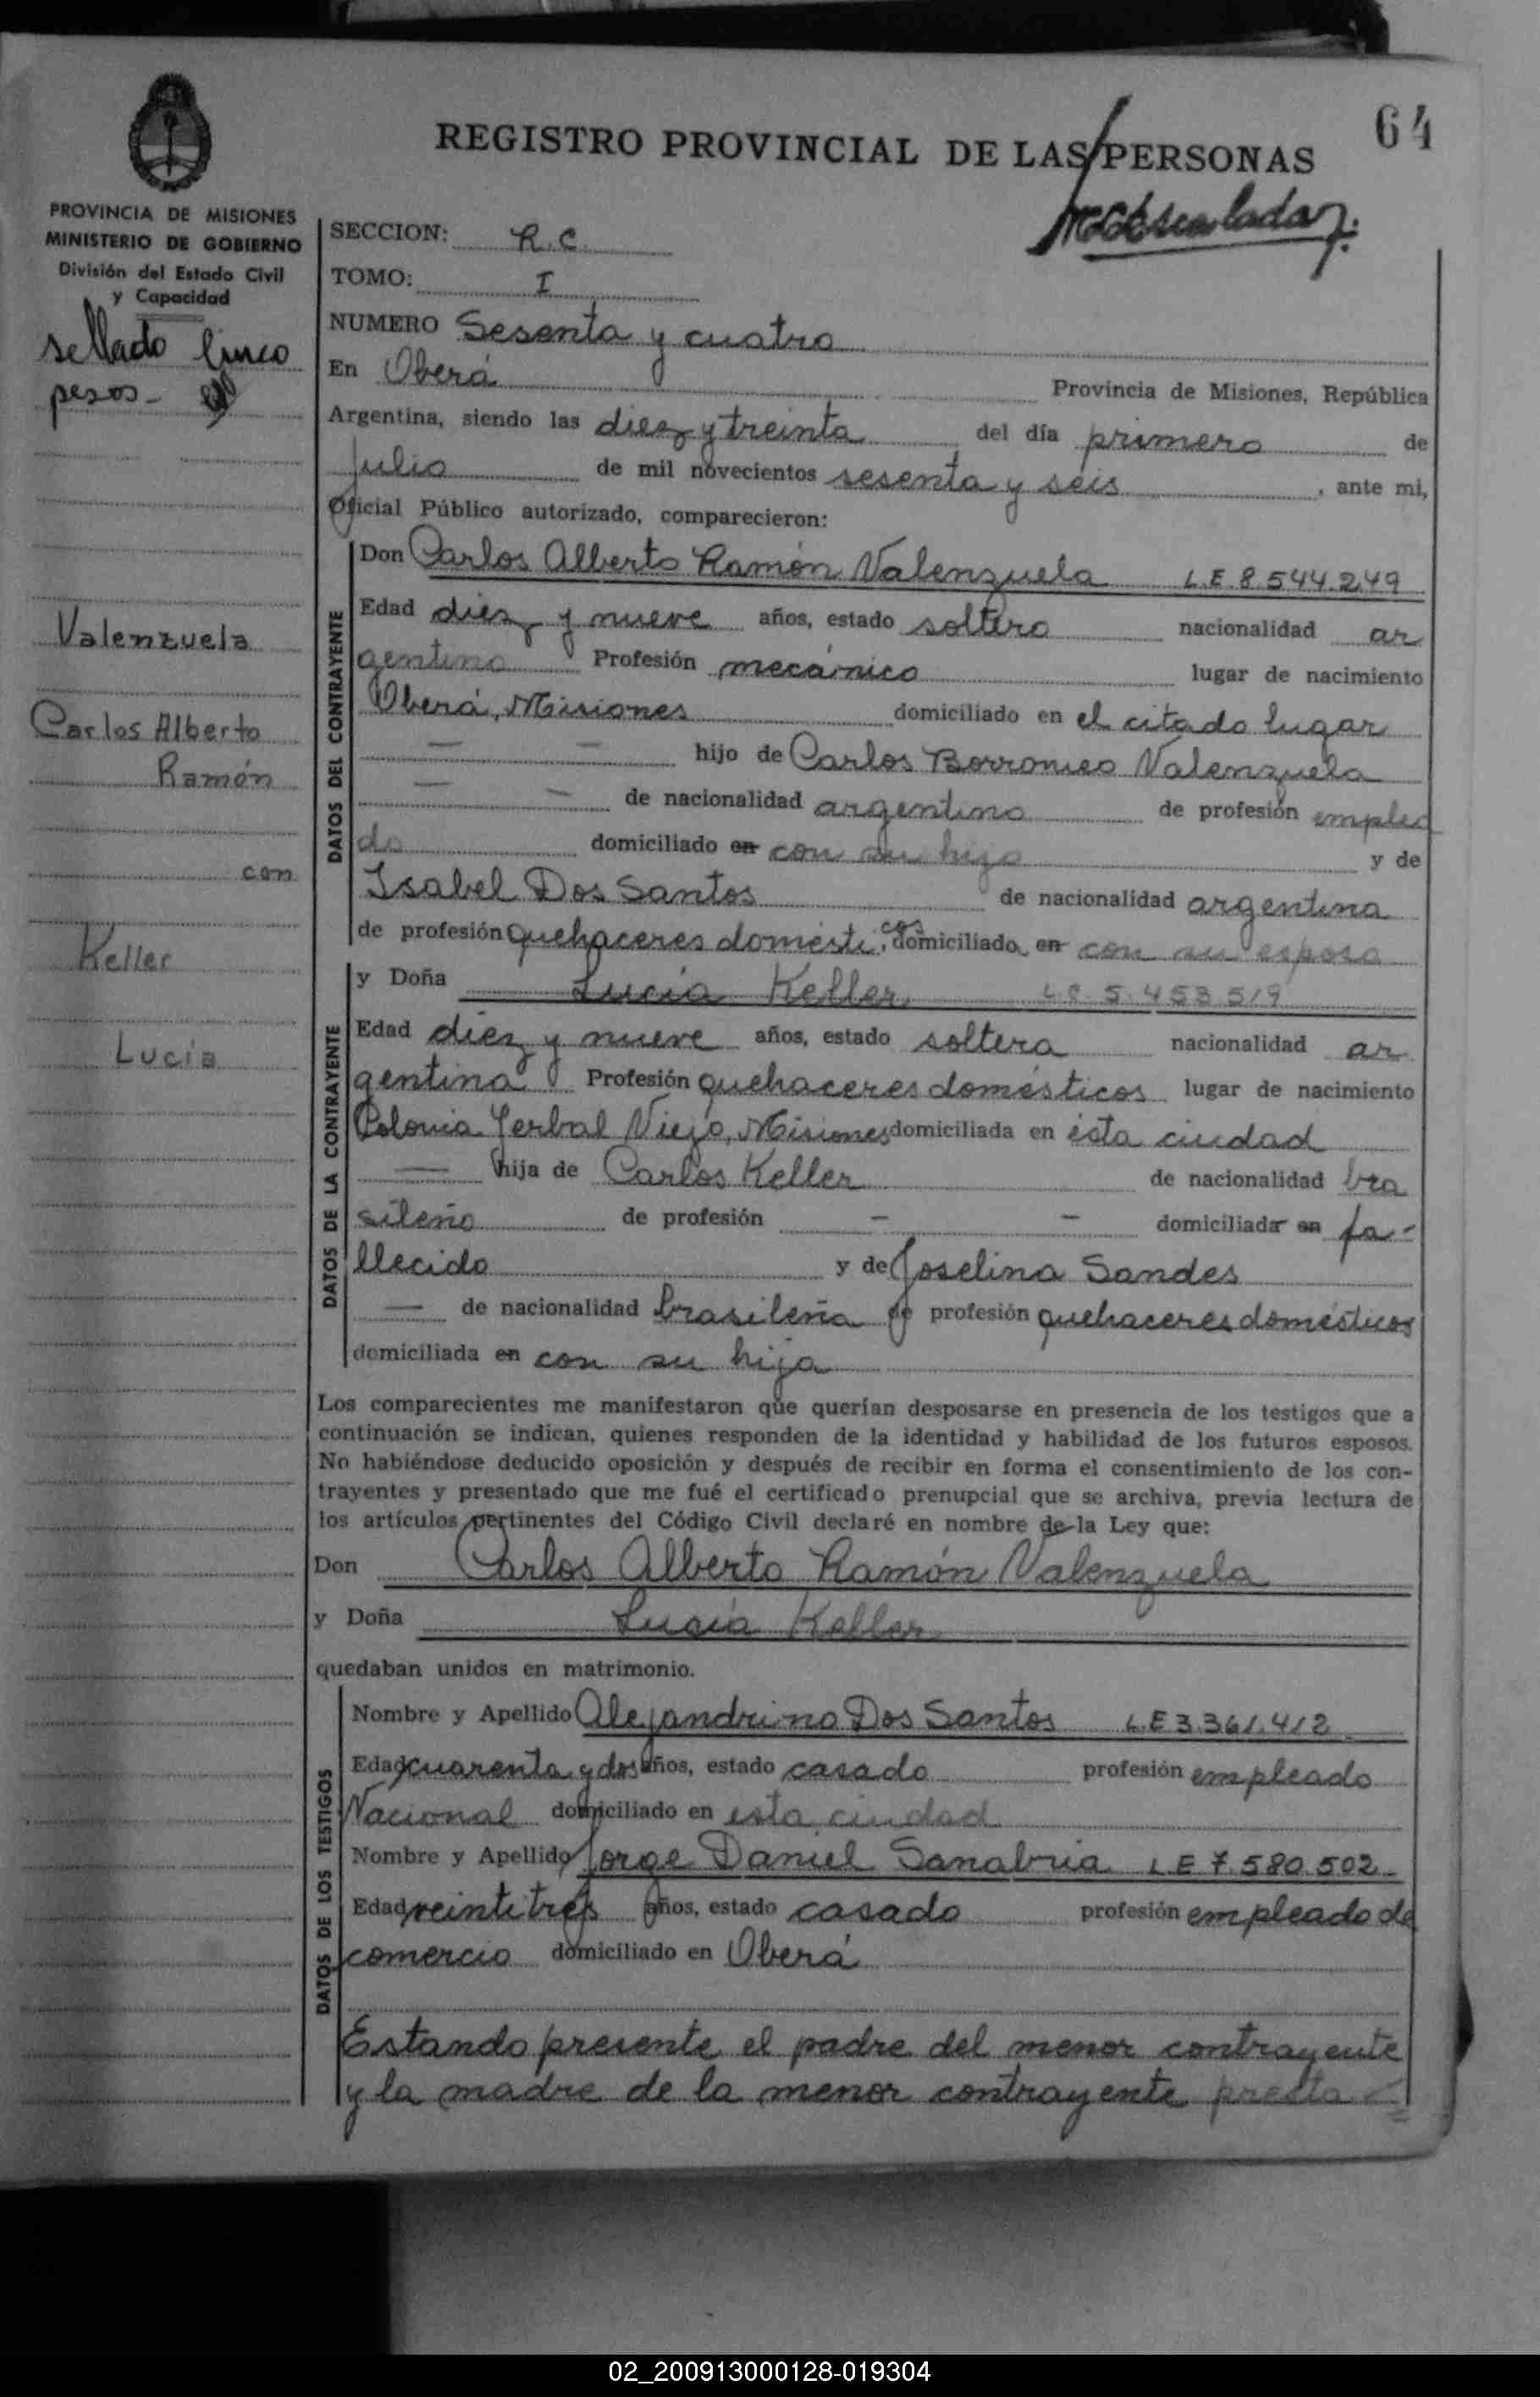 64
REGISTRO PROVINCIAL DE LAS PERSONAS
PROVINCIA DE MISIONES
MINISTERIO DE GOBIERNO
División del Estado Civil
y Capacidad
sellado cinco
pesos-
Valenzuela
Carlos Alberto
Ramón
con
Keller
Lucía
SECCION: R.C.
TOMO: I
NUMERO Sesenta y cuatro
En Oberá Provincia de Misiones, República
Argentina, siendo las diez y treinta del día primero de
Julio de mil novecientos sesenta y seis, ante mi,
Oficial Público autorizado, comparecieron:
DATOS DEL CONTRAYENTE
Don Carlos Alberto Ramón Valenzuela L.E 8.544.249
Edad diez y nueve años, estado soltero nacionalidad ar
gentino Profesión mecánico lugar de nacimiento
Oberá, Misiones domiciliado en el citado lugar
— — hijo de Carlos Borromeo Valenzuela
— — de nacionalidad argentino de profesión emplea
do domiciliado en con su hijo y de
Isabel Dos Santos de nacionalidad argentina
de profesión quehaceres domésticos, domiciliado en con su esposo
DATOS DE LA CONTRAYENTE
y Doña Lucía Keller L.C. 5.453.519
Edad diez y nueve años, estado soltera nacionalidad ar
gentina Profesión quehaceres domésticos lugar de nacimiento
Colonia Yerbal Viejo, Misiones domiciliada en ésta ciudad
— hija de Carlos Keller de nacionalidad bra
sileño de profesión - - domiciliada en fa-
llecido y de Joselina Sandes
— de nacionalidad brasileña de profesión quehaceres domésticos
domiciliada en con su hija
Los comparecientes me manifestaron que querían desposarse en presencia de los testigos que a
continuación se indican, quienes responden de la identidad y habilidad de los futuros esposos.
No habiéndose deducido oposición y después de recibir en forma el consentimiento de los con-
trayentes y presentado que me fué el certificado prenupcial que se archiva, previa lectura de
los artículos pertinentes del Código Civil declaré en nombre de la Ley que:
Don Carlos Alberto Ramón Valenzuela
y Doña Lucía Keller
quedaban unidos en matrimonio.
DATOS DE LOS TESTIGOS
Nombre y Apellido Alejandrino Dos Santos L.E 3.361.412
Edad cuarenta y dos años, estado casado profesión empleado
Nacional domiciliado en esta ciudad
Nombre y Apellido Jorge Daniel Sanabria L E 7.580.502
Edad veintitres años, estado casado profesión empleado de
comercio domiciliado en Oberá
Estando presente el padre del menor contrayente
y la madre de la menor contrayente presta
02_200913000128-019304